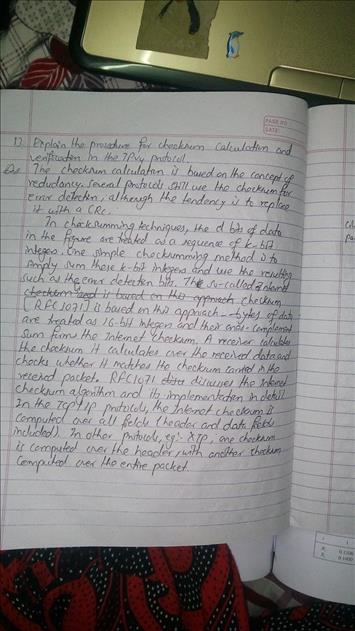 PAGE NO
DATE:
17. Explain the procedure for checksum calculation and
verification in the IPv4 protocol.
The checksum calculation is based on the concept of
redundancy. Several protocols still use the checksum for
error detection, although the tendency is to replace
it with a CRC.
In checksumming techniques, the d bits of data
in the figure are treated as a sequence of k-bit
integers. One simple checksumming method is to
simply sum these k-bit integers and use the resulting
such as the error detection bits. The so-called internet
checksum used is based on this approach checksum
(RFC1071) is based on this approach - bytes of data
are treated as 16-bit integers and their ones-complement
sum forms the Internet checksum. A receiver calculates
the checksum it calculates over the received data and
checks whether it matches the checksum carried in the
received packet. RFC1071 discusses the Internet
checksum algorithm and its implementation in detail
In the TCP/IP protocols, the Internet checksum is
computed over all fields (header and data fields
included). In other protocols, eg:- XTP, one checksum
is computed over the header, with another checksum
computed over the entire packet.